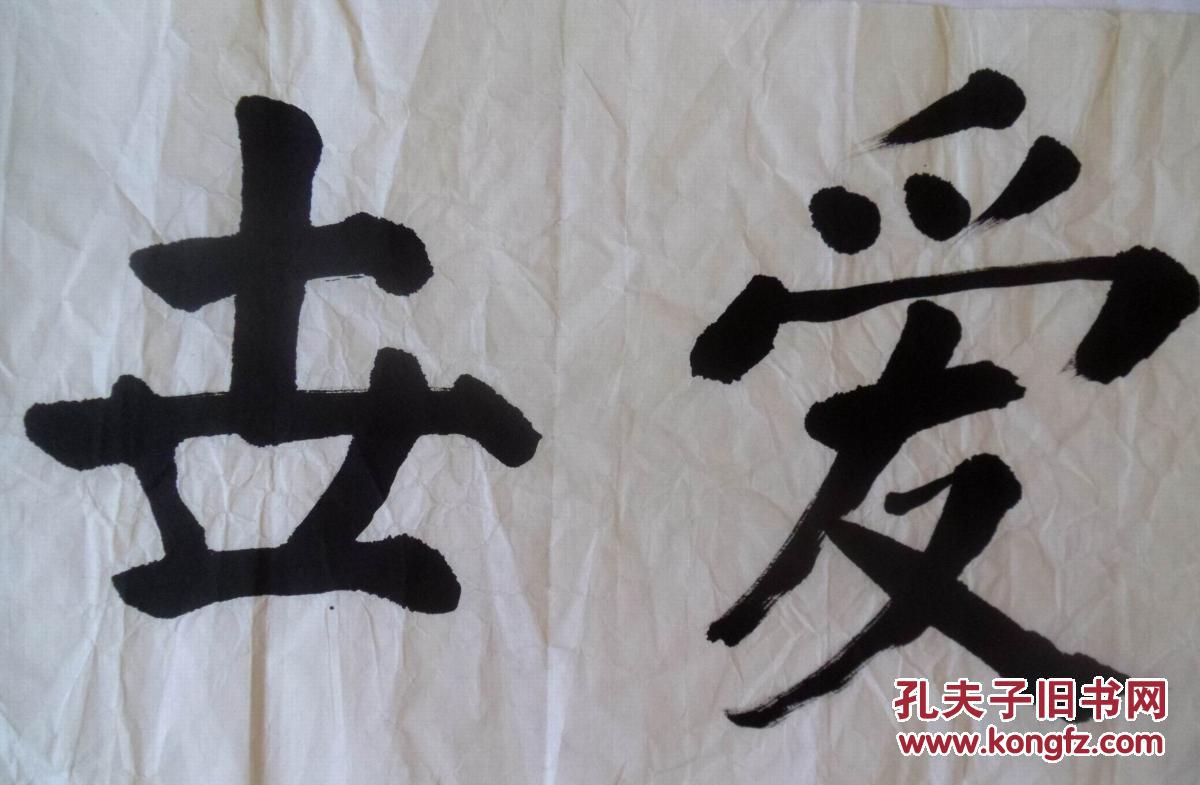 爱卋
孔夫子旧书网
www.kongfz.com